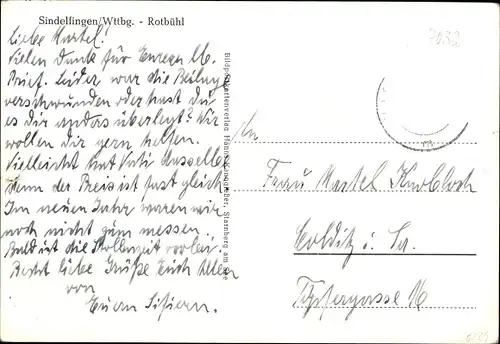 Sindelfingen/Wttbg. - Rotbühl
7032
Liebe Martel!
Vielen Dank für Eueren lb.
Brief. Leider war die Beilage
verschwunden oder hast du
es dir anders überlegt? Wir
wollen dir gern helfen.
Vielleicht hat Vati dasselbe
denn der Preis ist fast gleich
Im neuen Jahr waren wir
noch nicht zum messen.
Bald ist die Stollenzeit vorbei.
Recht liebe Grüße Euch allen
von
Euern
An
Frau Martel Knobloch
Colditz i. Sa.
Töpfergasse 16